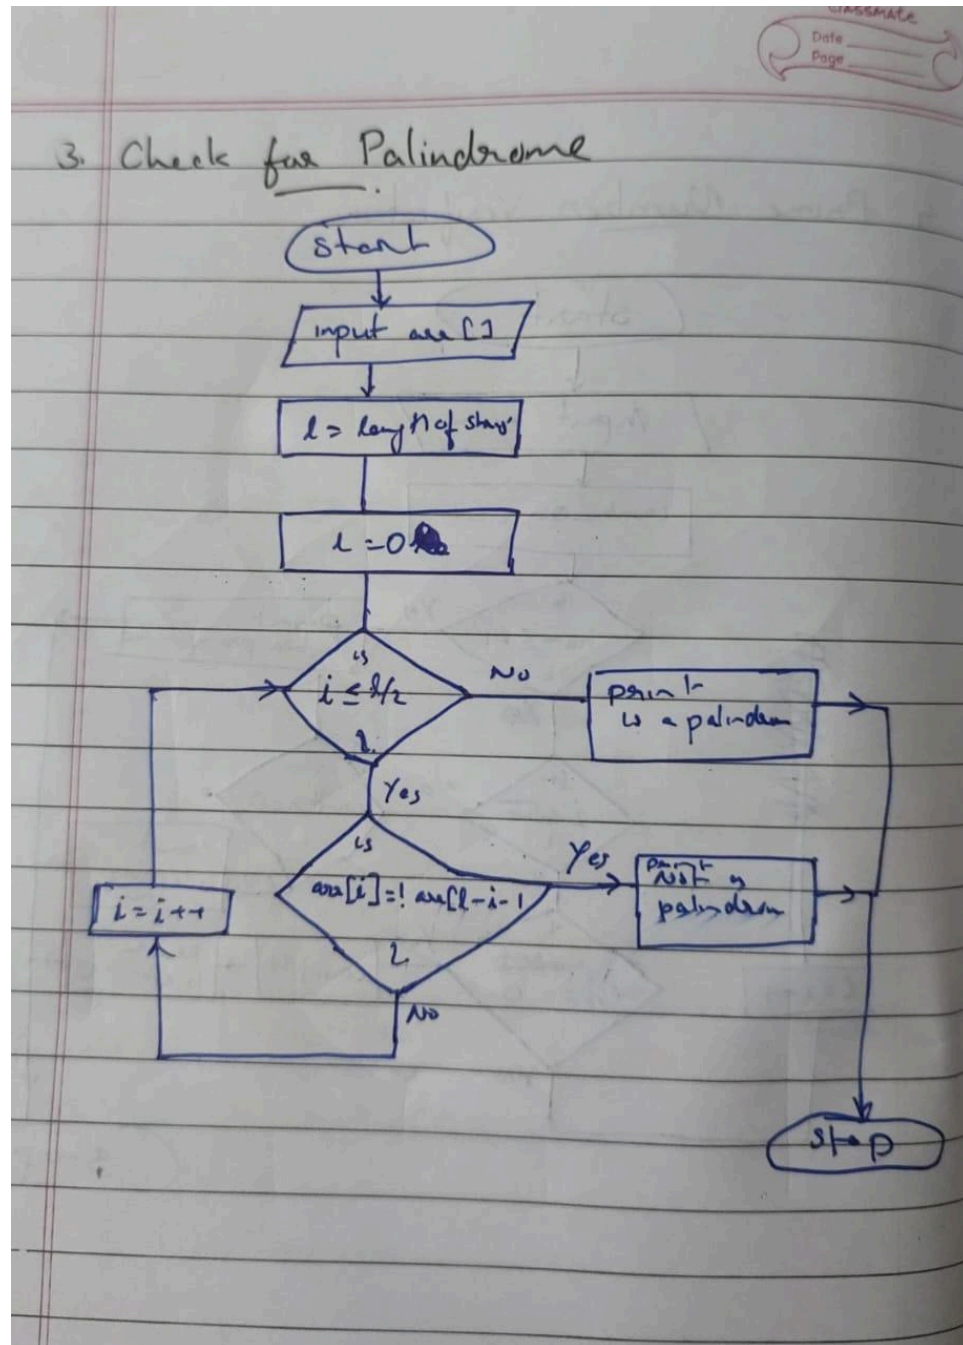 classmate
Date
Page
3. Check for Palindrome
start
input arr []
l = length of string
i = 0
is
i ≤ l/2
?
No
print
is a palindrom
Yes
is
arr[i] =! arr[l-i-1
?
Yes
print
Not a
palindrom
i = i++
No
stop